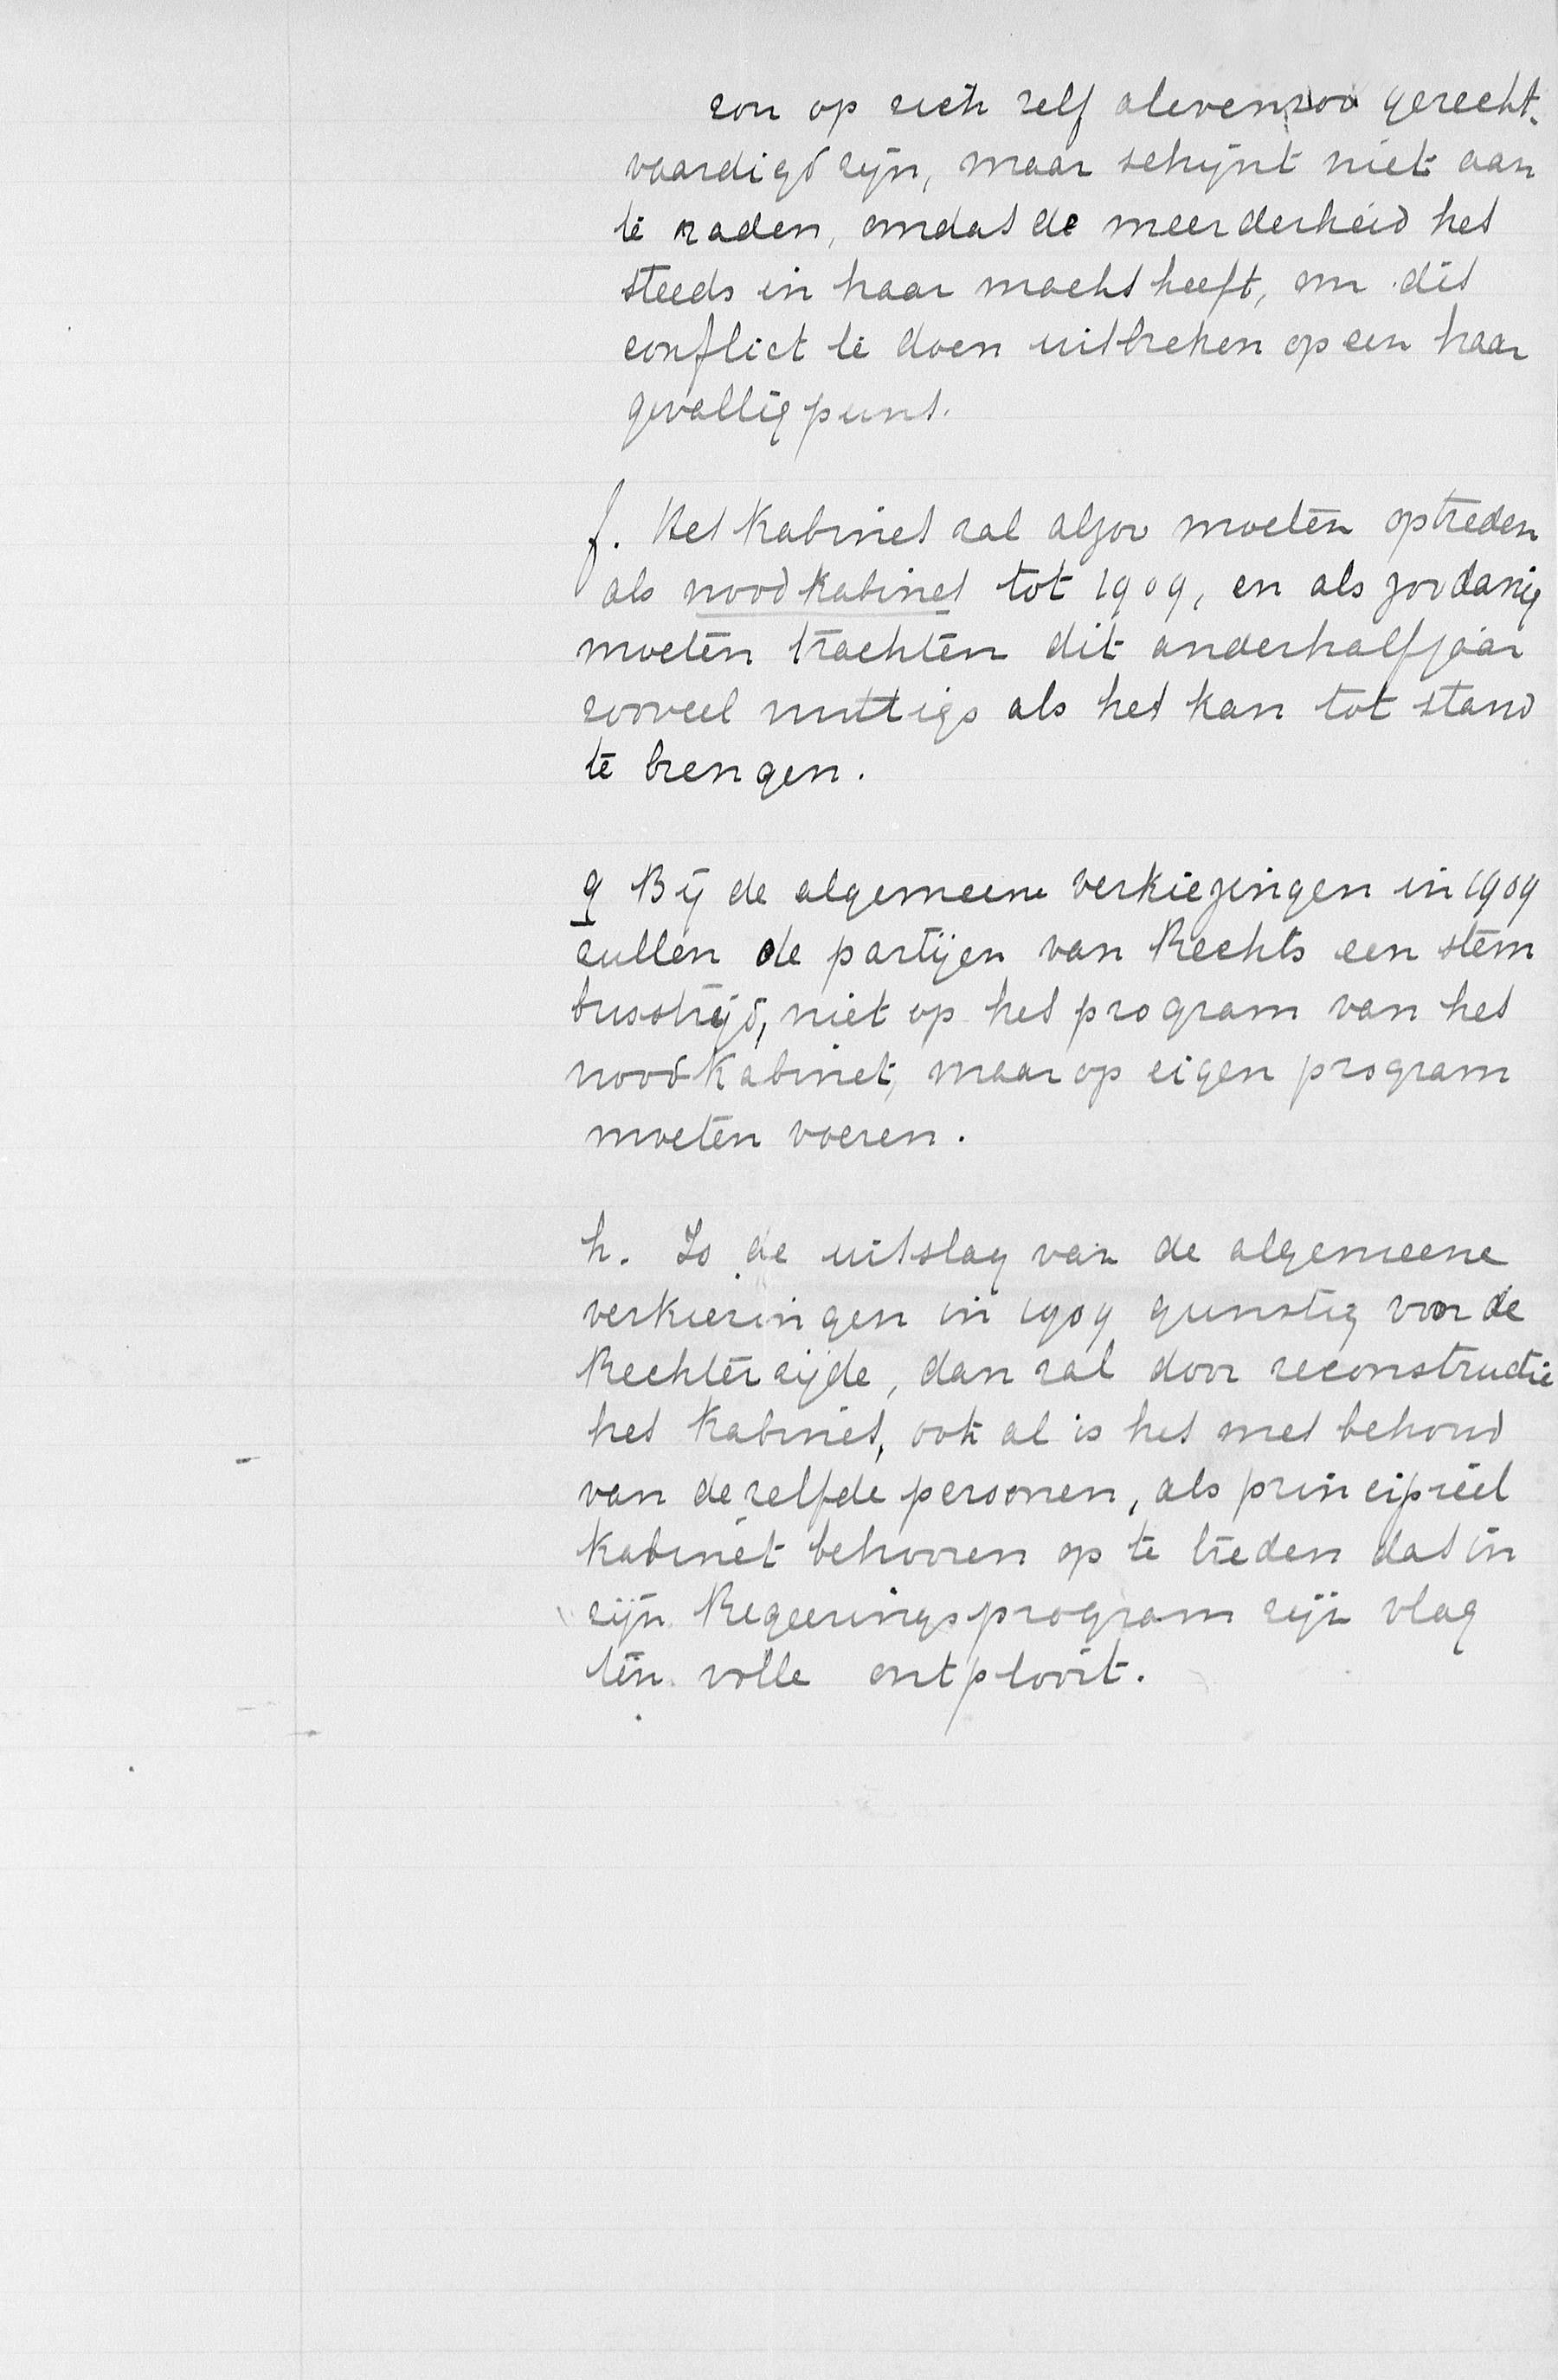 zou op zich zelf alevenzoo gerecht-
vaardigd zijn, maar schijnt niet aan
te raden, omdat de meerderheid het
steeds in haar macht heeft, om dit
conflict te doen uitbreken op een haar
gevallig punt.
f. Het Kabinet zal alzoo moeten optreden
als noodkabinet tot 1909, en als zoodanig
moeten trachten dit anderhalf jaar
zooveel nuttigs als het kan tot stand
te brengen.
g Bij de algemeene verkiezingen in 1909
zullen de partijen van Rechts een stem
busstrijd, niet op het program van het
noodkabinet, maar op eigen program
moeten voeren.
h. Is de uitslag van de algemeene
verkiezingen in 1909 gunstig voor de
Rechterzijde, dan zal door reconstructie
het Kabinet, ook al is het met behoud
van dezelfde personen, als principieel
Kabinet behooren op te treden dat in
zijn Regeeringsprogram zijn vlag
ten volle ontplooit.